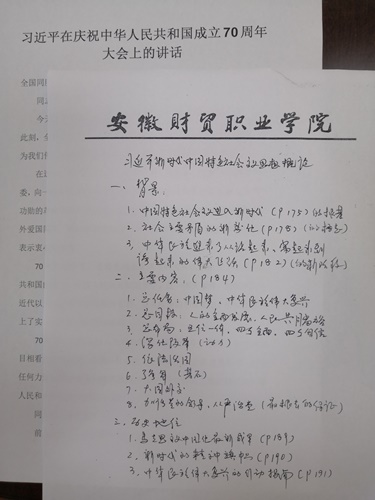 习近平在庆祝中华人民共和国成立70周年
大会上的讲话
全国同
同
今
此刻，全
为我们
在
委，向一
功能的
外爱国
表示衷
70
共和国
近代以
上了实
70
目相看
任何力
人民和
同
前
安徽财贸职业学院
习近平新时代中国特色社会主义思想概论
一、背景：
1. 中国特色社会主义进入新时代（P175）
2. 社会主要矛盾的新变化（P178）
3. 中华民族迎来了从站起来、富起来到
强起来的伟大飞跃（P182）
二、主要内容：（P184）
1. 总任务：中国梦，中华民族伟大复兴
2. 总目标：人的全面发展，人民共同富裕
3. 总布局：五位一体，四个全面，四个自信
4. 深化改革（动力）
5. 依法治国
6. 强军（基石）
7. 大国外交
8. 加强党的领导，从严治党
三、历史地位
1. 马克思主义中国化最新成果（P189）
2. 新时代的精神旗帜（P190）
3. 中华民族伟大复兴的行动指南（P191）